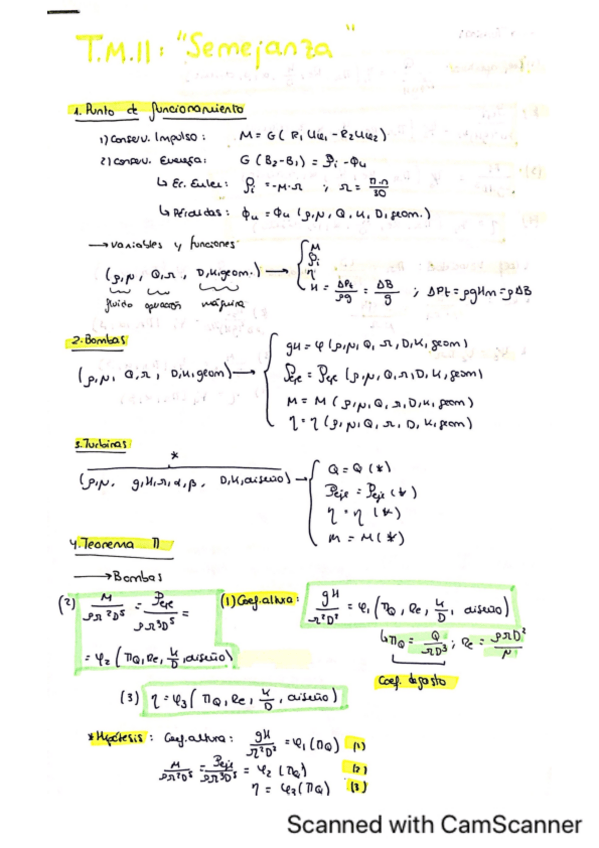 T.M.II: "Semejanza"
1. Punto de funcionamiento
1) Conserv. Impulso: M = G(R₁Uu₁ - R₂Uu₂)
2) Conserv. Energía: G(B₂-B₁) = Pi - Φu
↳ Ec. Euler: Pi = -M·Ω ; Ω = πn/30
↳ Pérdidas: Φu = Φu (ρ, μ, Q, K, D, geom.)
→ variables y funciones
(ρ, μ, Q, Ω, D, K, geom.) → { M
Pi
η
H = ΔPt/ρg = ΔB/g ; ΔPt = ρgHm = ρΔB
fluido operación máquina
2. Bombas
(ρ, μ, Q, Ω, D, K, geom) → { gH = φ (ρ, μ, Q, Ω, D, K, geom)
Peje = Peje (ρ, μ, Q, Ω, D, K, geom)
M = M (ρ, μ, Q, Ω, D, K, geom)
η = η (ρ, μ, Q, Ω, D, K, geom)
3. Turbinas
*
(ρ, μ, g, H, Ω, α, β, D, K, diseño) → { Q = Q (*)
Peje = Peje (*)
η = η (*)
M = M (*)
4. Teorema Π
→ Bombas
(2) M/ρΩ²D⁵ = Peje/ρΩ³D⁵ =
= φ₂ (ΠQ, Re, K/D, diseño)
(1) Coef. altura: gH/Ω²D² = φ₁ (ΠQ, Re, K/D, diseño)
↳ ΠQ = Q/ΩD³ ; Re = ρΩD²/μ
Coef. de gasto
(3) η = φ₃ (ΠQ, Re, K/D, diseño)
* Hipótesis: Coef. altura: gH/Ω²D² = φ₁ (ΠQ) (1)
M/ρΩ²D⁵ = Peje/ρΩ³D⁵ = φ₂ (ΠQ) (2)
η = φ₃ (ΠQ) (3)
Scanned with CamScanner